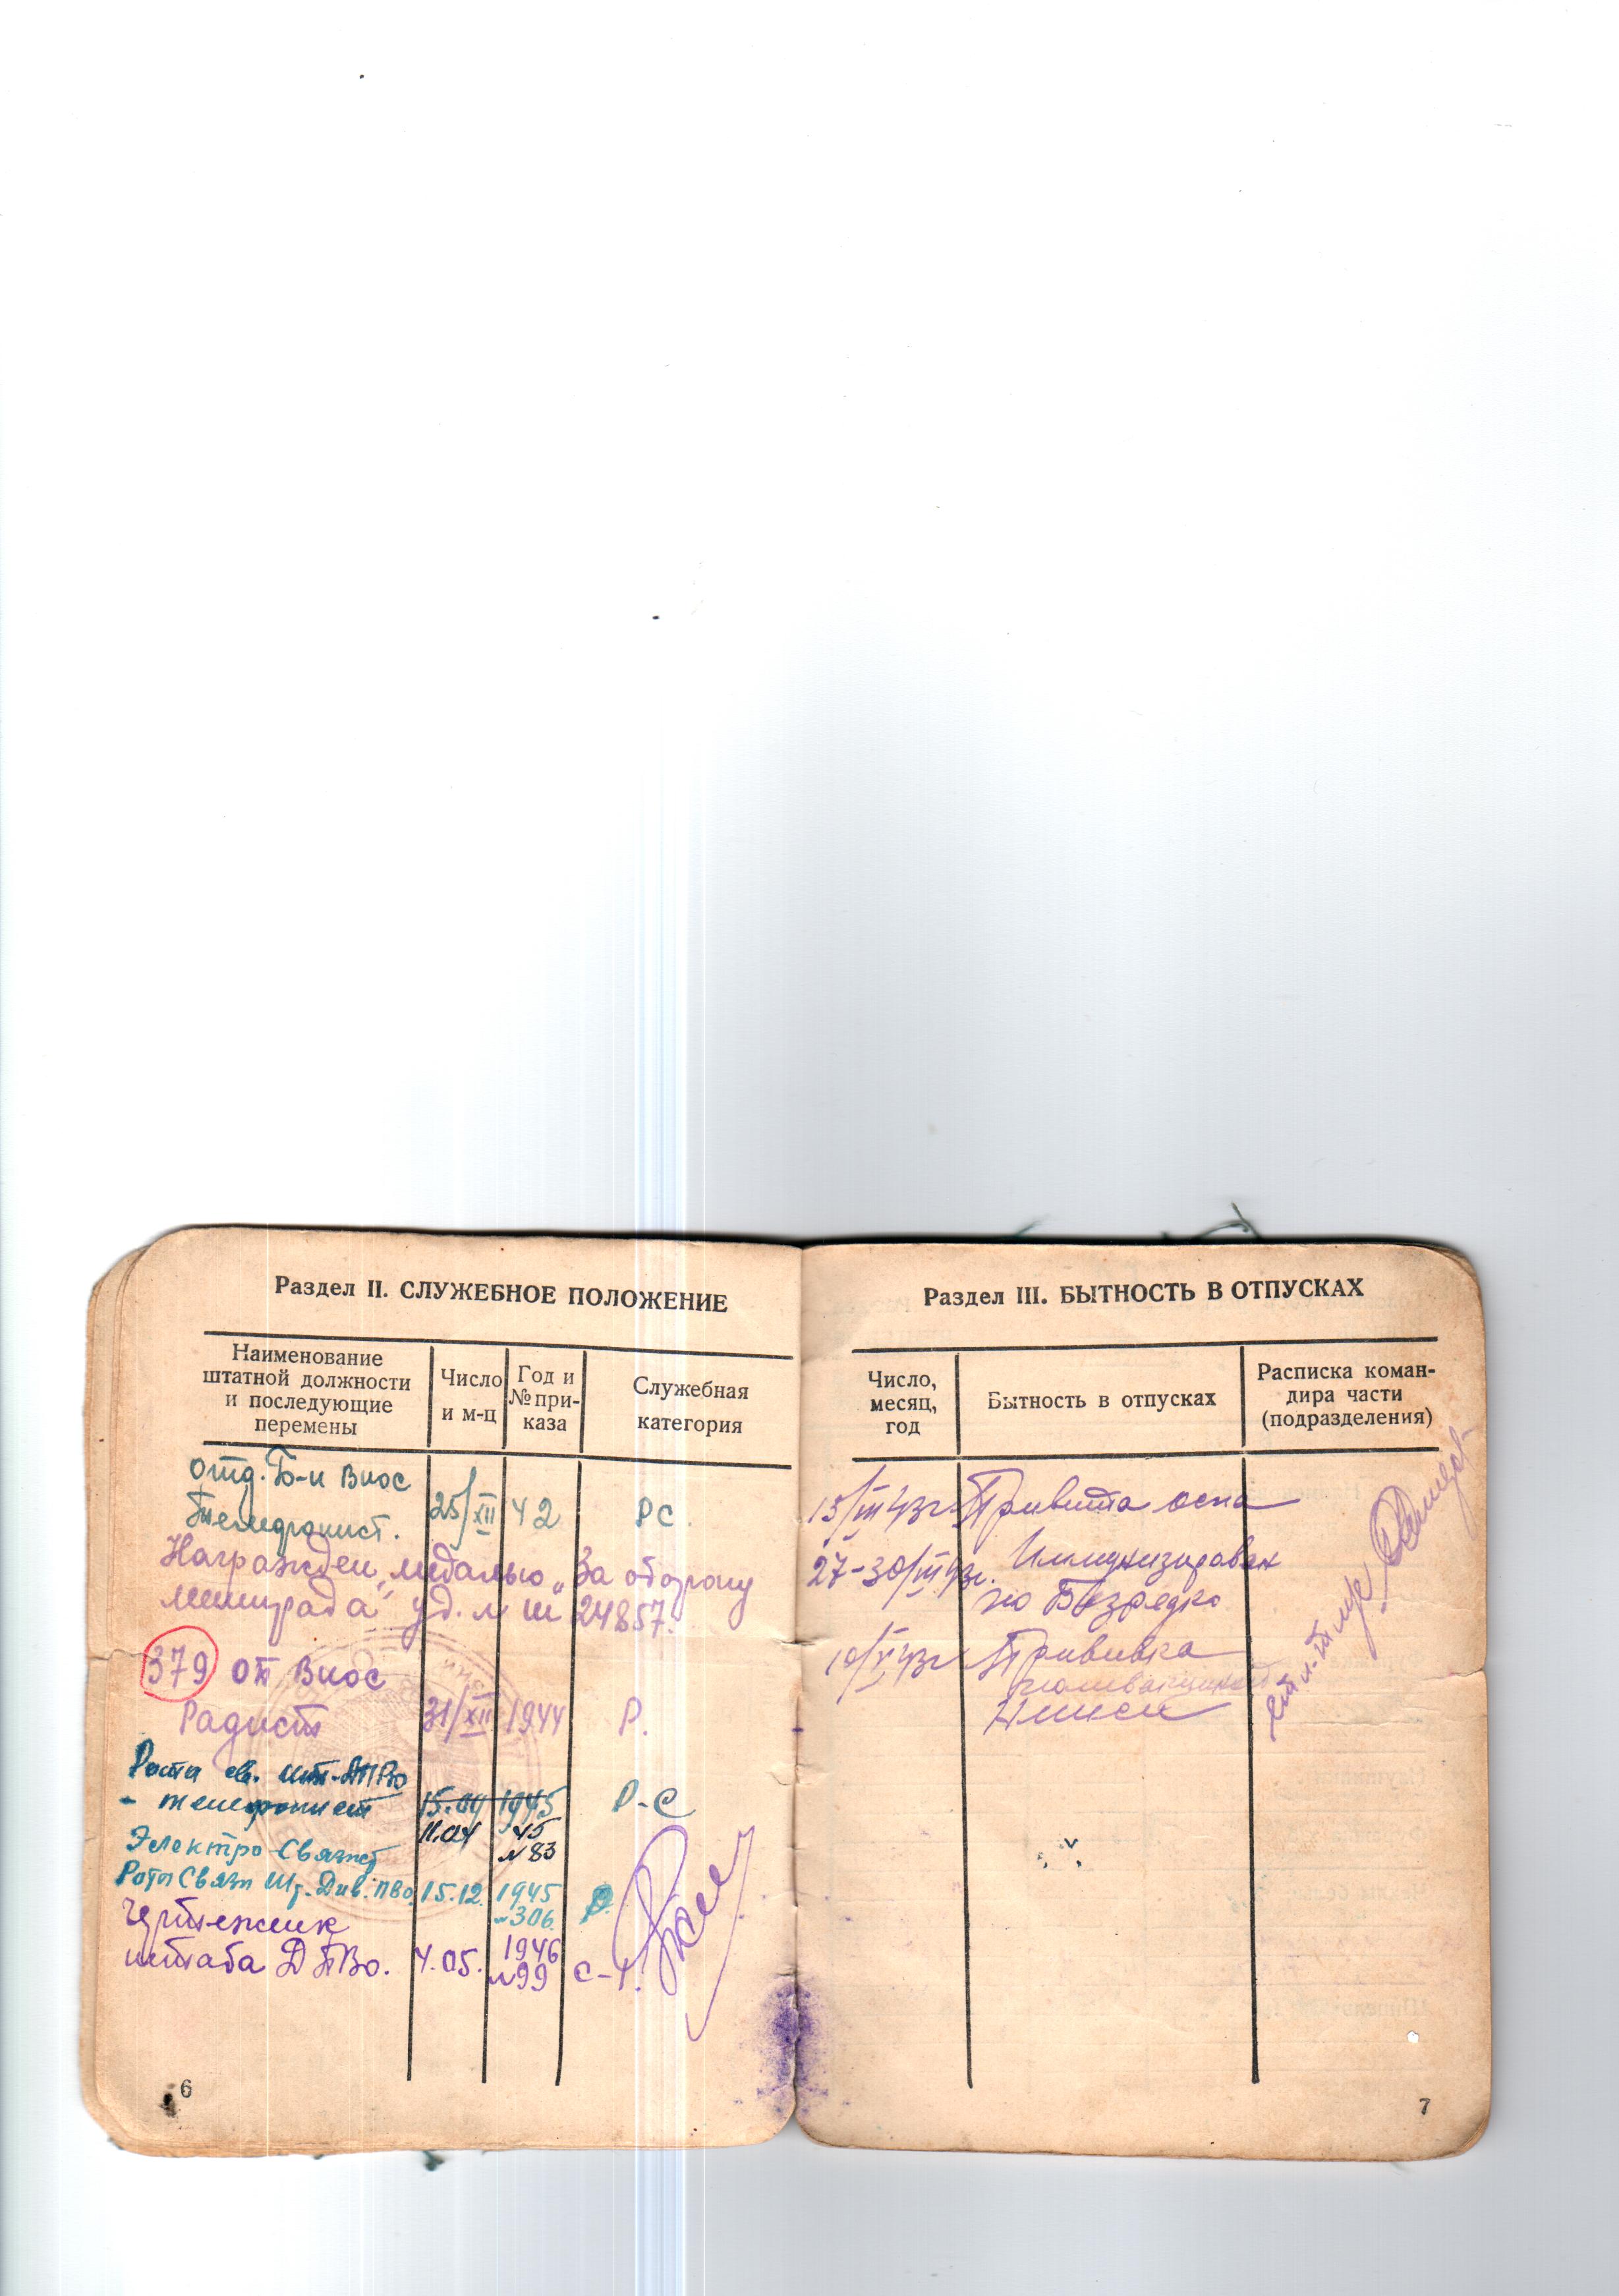 Раздел II. СЛУЖЕБНОЕ ПОЛОЖЕНИЕ
Наименование штатной должности и последующие перемены
Число и м-ц
Год и № при-каза
Служебная категория
Отд. Б-н Внос
Телефонист. 25/XII 42 РС.
Награжден медалью „За оборону
Ленинграда" уд. 24857.
379 ОТ Внос
Радист 31/XII 1944 Р.
Рота св. шт. ДПВО
- телефонист 15.04 1945 Р-С
11.04 45
Электро-Связист №83
Роты Связи Шт. Див. ПВО 15.12. 1945
№306.
Чертежник 1946
штаба ДПВО. 4.05. №99
6
Раздел III. БЫТНОСТЬ В ОТПУСКАХ
Число, месяц, год
Бытность в отпусках
Расписка коман-
дира части
(подразделения)
15/III 43г. Привита оспа
27-30/III 43г. Иммунизирован
по Безредко
10/V 43г Прививка
поливакциной
Нииси
7